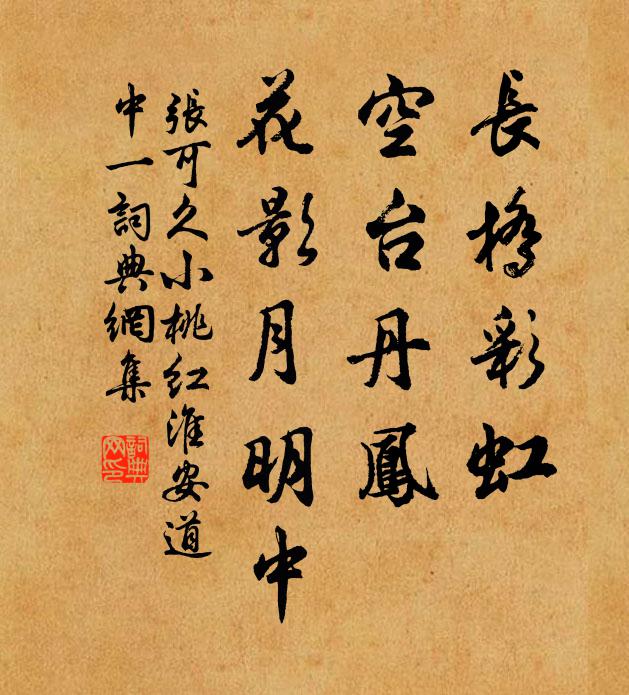 長橋彩虹
空台丹鳳
花影月明中
張可久小桃红淮安道
中一詞典網集
詞典
网印